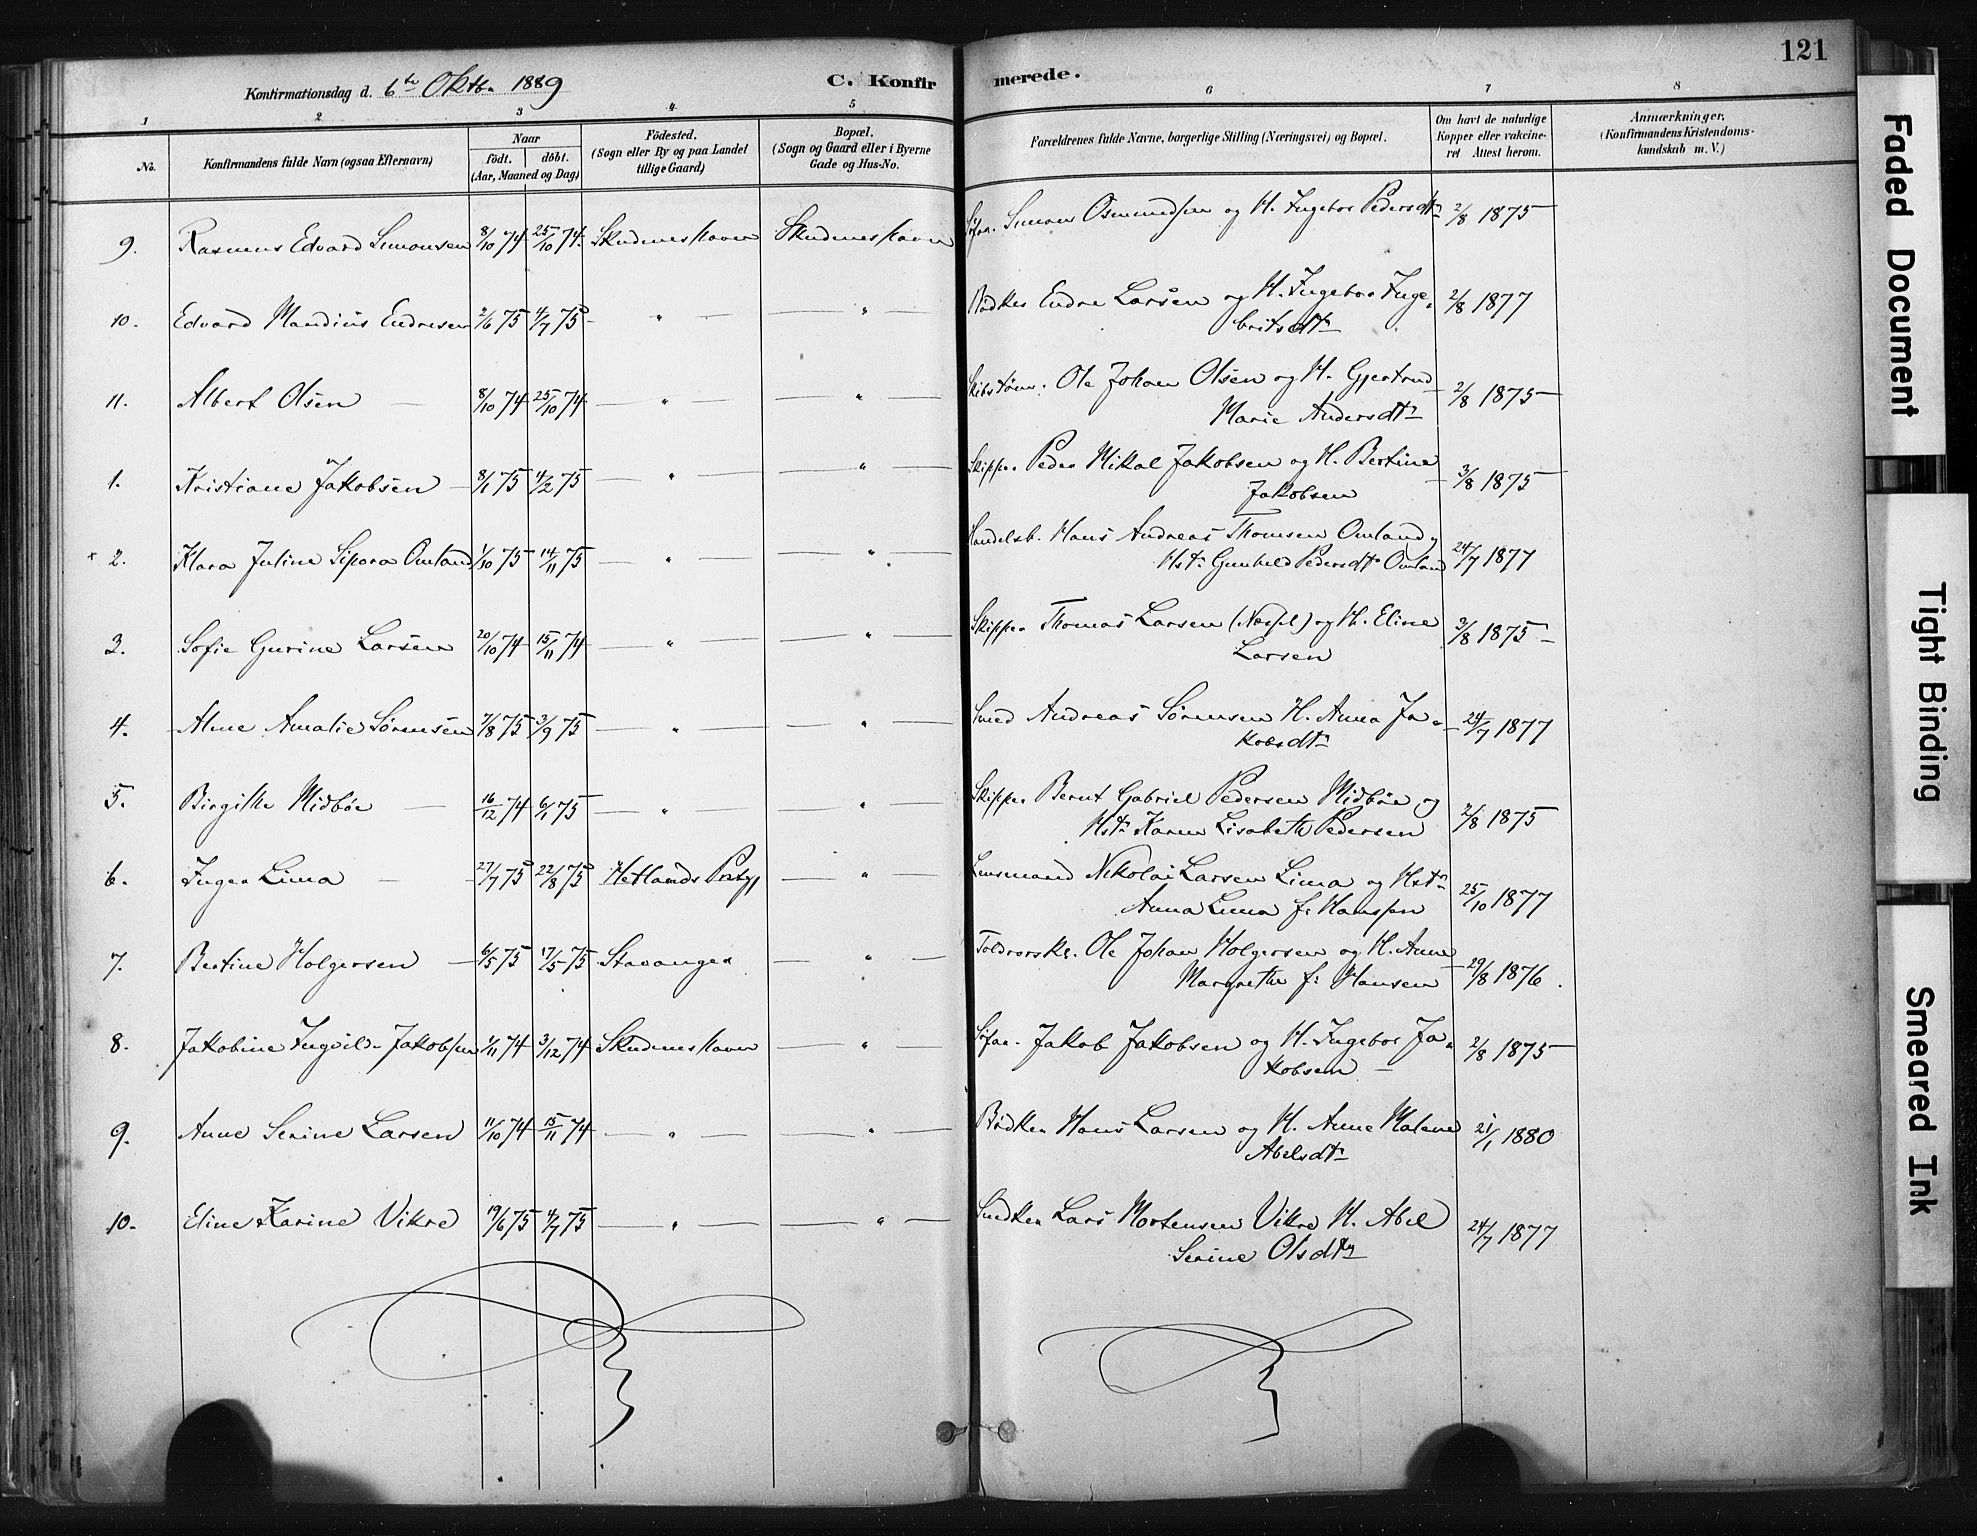 121
Konfirmationsdag d. 6te Oktbr 1889 C. Konfirmerede.
1 2 3 4 5 6 7 8
No. Konfirmandens fulde Navn (ogsaa Efternavn) Naar født. døbt. (Aar, Maaned og Dag) Fødested. (Sogn eller By og paa Landet tillige Gaard) Bopæl. (Sogn og Gaard eller i Byerne Gade og Hus-No. Forældrenes fulde Navne, borgerlige Stilling (Næringsvei) og Bopæl. Om havt de naturlige Kopper eller vakcineret Attest herom. Anmærkninger. (Konfirmandens Kristendomskundskab m. V.)
9. Rasmus Edvard Simonsen 8/10 74 25/10 74 Skudeneshavn Skudeneshavn Søfar. Simon Osmundsen og H. Ingebor Pedersdtr 2/8 1875
10. Edvard Mandius Endresen 2/6 75 4/7 75 — " — — " — Bødker Endre Larsen og H. Ingebor Inge-
britsdtr 2/8 1877
11. Albert Olsen — 8/10 74 25/10 74 — " — — " — Skibstømr. Ole Johan Olsen og H. Gjertrud
Marie Andersdtr 2/8 1875
1. Kristiane Jakobsen — 8/1 75 4/2 75 — " — — " — Skipper Peder Mikal Jakobsen og H. Bertine
Jakobsen 3/8 1875
x 2. Klara Juline Sipora Omland 1/10 75 14/11 75 — " — — " — Handelsb. Hans Andreas Thomsen Omland og
Hstr Gunhild Pedersdtr Omland 24/7 1877
3. Sofie Gurine Larsen 20/10 74 15/11 74 — " — — " — Skipper Thomas Larsen () og H. Eline
Larsen 3/8 1875
4. Alme Amalie Sørensen 7/8 75 3/9 75 — " — — " — Smed Andreas Sørensen H. Anna Ja-
kobsdtr 24/7 1877
5. Birgithe Midbøe — 16/12 74 6/1 75 — " — — " — Skipper Bernt Gabriel Pedersen Midbøe og
Hstr Karen Lisabeth Pedersen 2/8 1875
6. Inger Lima — 27/7 75 22/8 75 Hetlands Pstgj — " — Lensmand Nikolai Larsen Lima og Hstr
Anna Lima f: Hanssen 25/10 1877
7. Bertine Holgersen — 6/5 75 17/5 75 Stavanger — " — Toldrorsk. Ole Johan Holgersen og H. Anne
Margrethe f: Hansen 29/8 1876.
8. Jakobine Ingvild Jakobsen 1/11 74 3/12 74 Skudeneshavn — " — Søfar. Jakob Jakobsen og H. Ingebor Ja-
kobsen — 2/8 1875
9. Anne Serine Larsen 11/10 74 15/11 74 — " — — " — Bødker Hans Larsen og H. Anne Malene
Abelsdtr 21/1 1880
10. Eline Karine Vikre 19/6 75 4/7 75 — " — — " — Snedker Lars Mortensen Vikre H. Abel
Serine Olsdtr 24/7 1877
Faded Document
Tight Binding
Smeared Ink